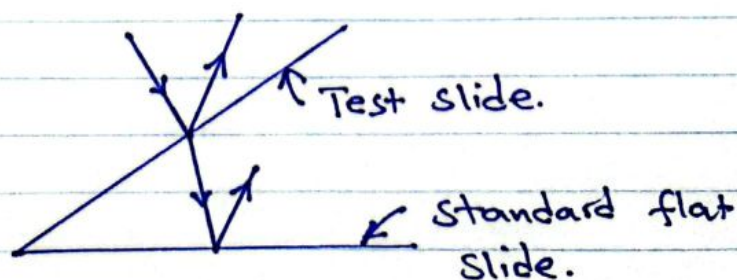 Test slide.
standard flat
slide.